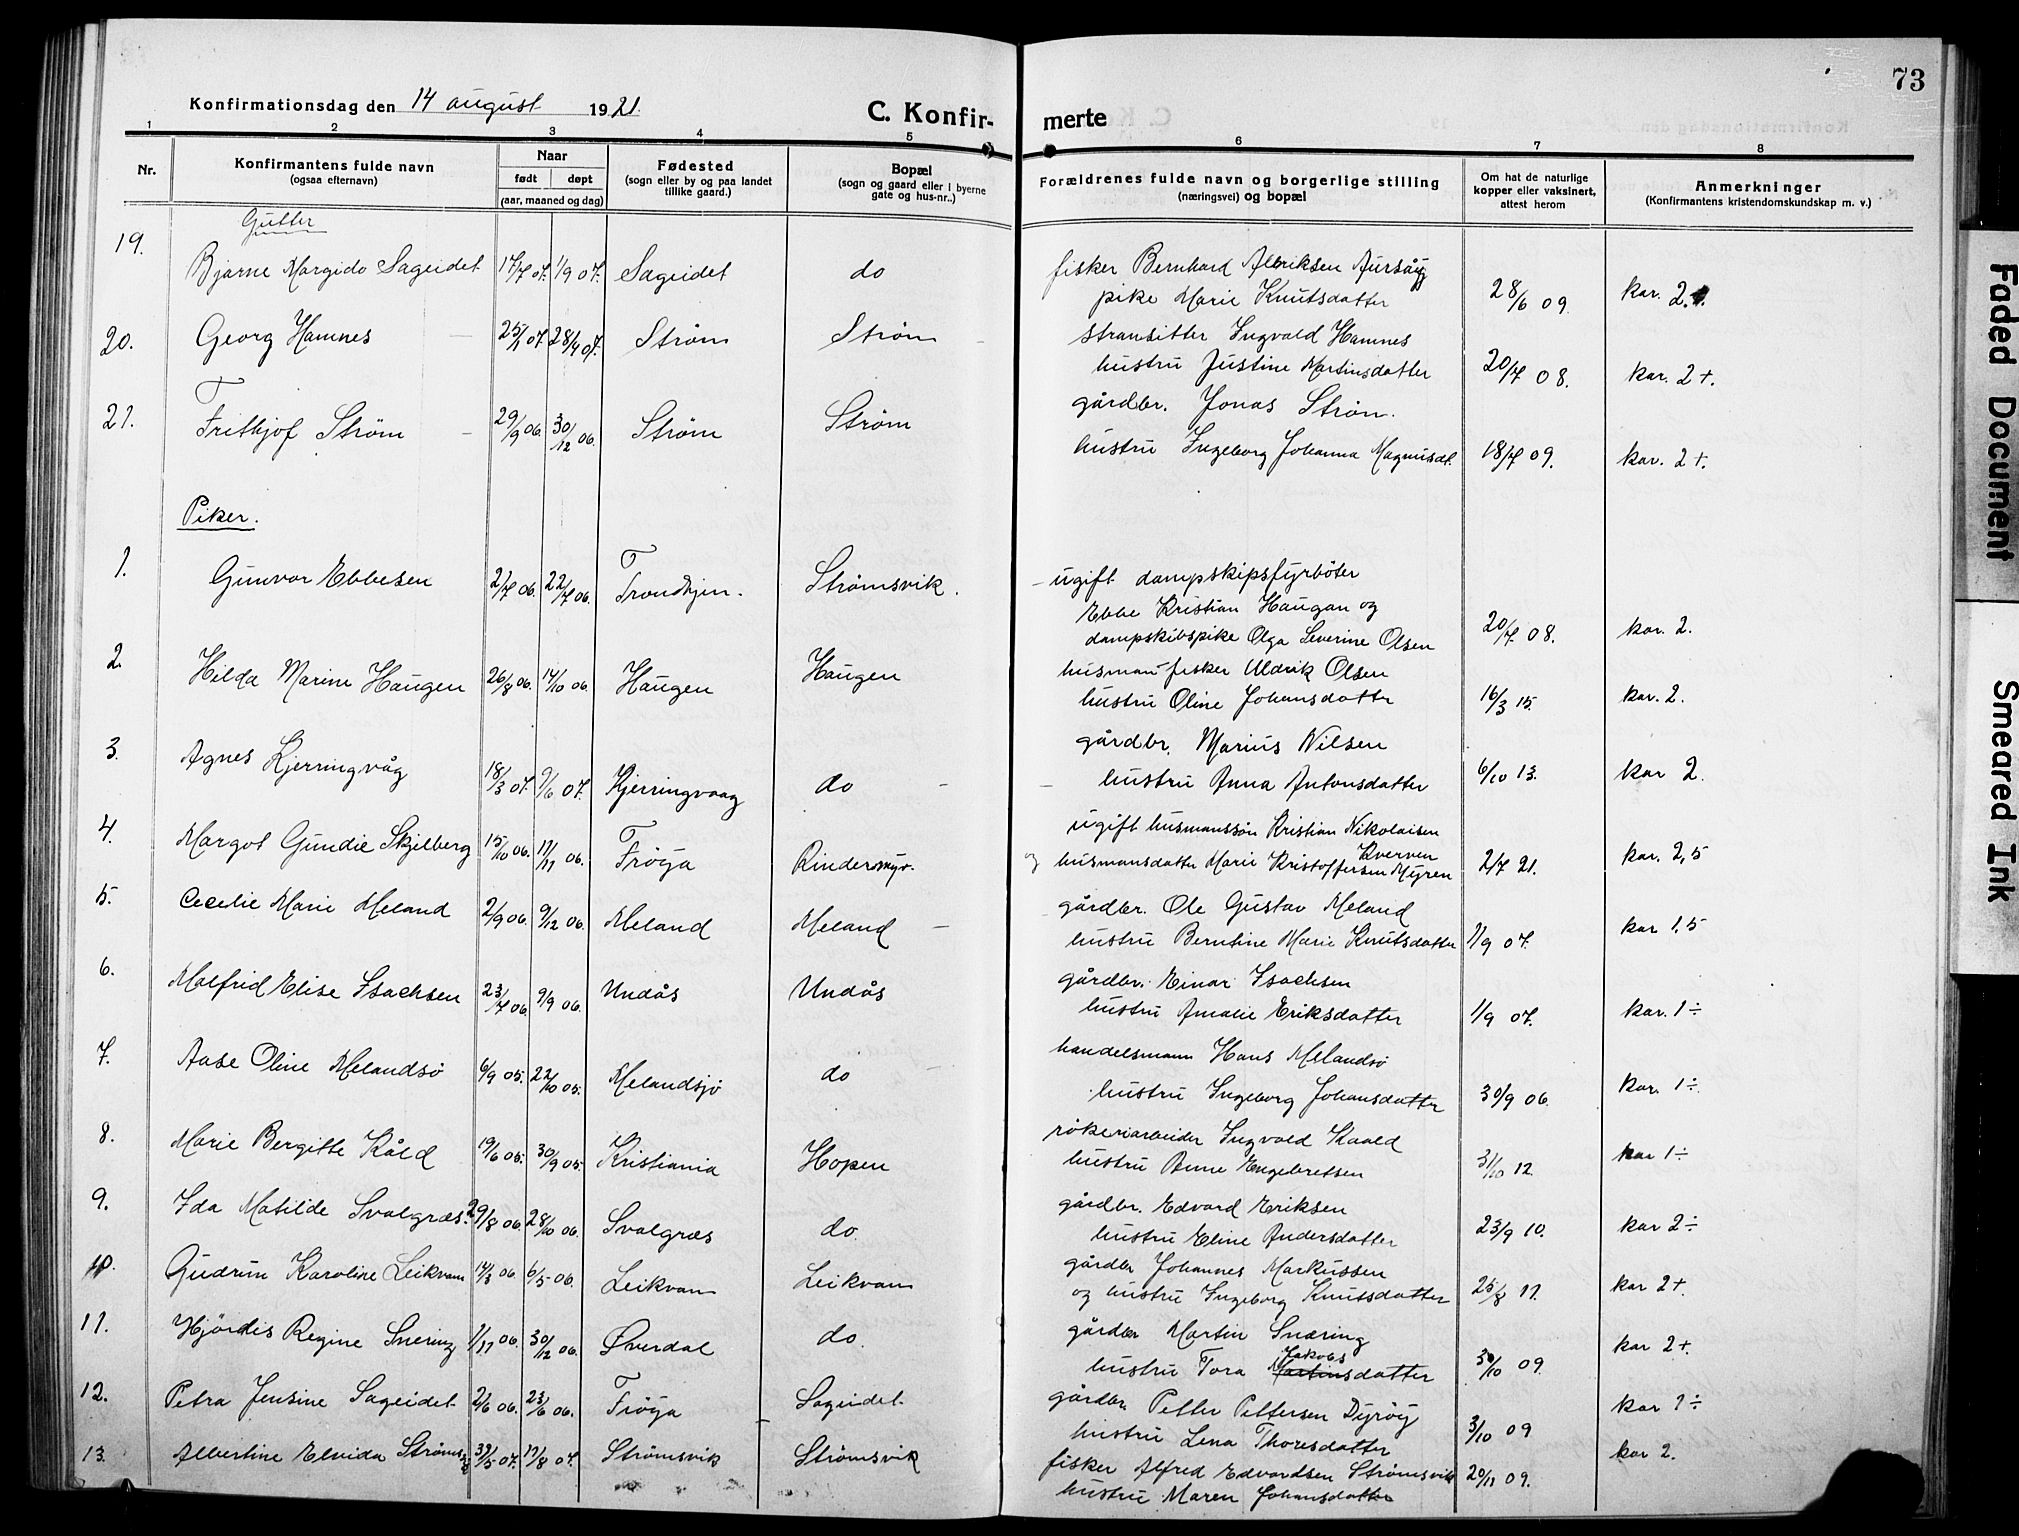 73
Konfirmationsdag den 14 august 1921.
C. Konfir-
merte
1 2 3 4 5 6 7 8
Nr.
Konfirmantens fulde navn
(ogsaa efternavn)
Naar
født døpt
(aar, maaned og dag)
Fødested
(sogn eller by og paa landet
tillike gaard.)
Bopæl
(sogn og gaard eller i byerne
gate og hus-nr..)
Forældrenes fulde navn og borgerlige stilling
(næringsvei) og bopæl
Om hat de naturlige
kopper eller vaksinert,
attest herom
Anmerkninger
(Konfirmantens kristendomskundskap m. v.)
Gutter
19. Bjarne Margido Sageidet 17/7 07. 1/9 07. Sageidet do
fisker Bernhard Albriksen Aursøy
pike Marie Knutsdatter 28/6 09. kar. 2
20. Georg Hamnes 25/1 07. 28/4 07. Strøm Strøm
stransitter Ingvald Hamnes
hustru Justine Martinsdatter 20/7 08. kar. 2+.
21. Frithjof Strøm 29/9 06. 30/12 06. Strøm Strøm
gårdbr. Jonas Strøm.
hustru Ingeborg Johanna Magnusdt. 18/7 09. kar. 2+.
Piker.
1. Gunvor Ebbesen 2/7 06. 22/7 06. Trondhjem. Strømsvik.
ugift dampskipsfyrböter
Ebbe Kristian Haugan og
dampskibspike Olga Severine Olsen 20/7 08. kar. 2.
2. Hilda Marine Haugen 26/8 06. 14/10 06. Haugen Haugen
husman fisker Uldrik Olsen
hustru Oline Johansdatter 16/3 15. kar. 2.
3. Agnes Kjerringvåg 18/3 07. 9/6 07. Kjerringvaag do
gårdbr. Marius Nilsen
hustru Anna Antonsdatter 6/10 13. kar 2.
4. Margot Gundie Skjelberg 15/10 06. 11/11 06. Frøya Rindersmyr.
ugift husmanssøn Kristian Nikolaisen
Kverven
og husmansdatter Marie Kristoffersen Myren 2/7 21. kar. 2,5
5. Cecelie Marie Meland 2/9 06. 9/12 06. Meland Meland
gårdbr. Ole Gustav Meland
hustru Berntine Marie Knutsdatter 1/9 07. kar 1,5
6. Malfrid Elise Isachsen 23/7 06. 9/9 06. Undås Undås
gårdbr. Einar Isachsen
hustru Amalie Eriksdatter 1/9 07. kar. 1÷
7. Aase Oline Melandsø 6/9 05. 22/10 05. Melandsjø do
handelsmann Hans Melandsø
hustru Ingeborg Johansdatter 30/9 06. kar. 1÷.
8. Marie Bergitte Kåld 19/6 05. 30/9 05. Kristiania Hopen
røkeriarbeider Ingvald Kaald
hustru Anne Engebretsen 31/10 12. kar 1÷
9. Ida Matilde Svalgræs. 29/8 06. 28/10 06. Svalgræs do.
gårdbr. Edvard Eriksen
hustru Eline Andersdatter 23/9 10. kar 2÷
10. Gudrun Karoline Leikvam 14/3 06. 6/5 06. Leikvam Leikvam
gårdbr Johannes Markussen
og hustru Ingeborg Knutsdatter 25/8 11. kar 2+.
11. Hjördis Regine Snering 1/11 06. 30/12 06. Øverdal do.
gårdbr Martin Snæring
Jakobs
hustru Tora Martinsdatter 30/10 09. kar 2+.
12. Petra Jensine Sageidet 2/6 06. 23/6 06. Frøya Sageidet.
gårdbr. Petter Pettersen Dyrøy
hustru Lena Thoresdatter 3/10 09 kar 1÷
13. Albertine Elvida Strømsvik 30/5 07. 11/8 07. Strømsvik Strømsvik
fisker Alfred Edvardsen Strømsvik
hustru Maren Johansdatter 20/11 09. kar 2.
Faded Document
Smeared Ink